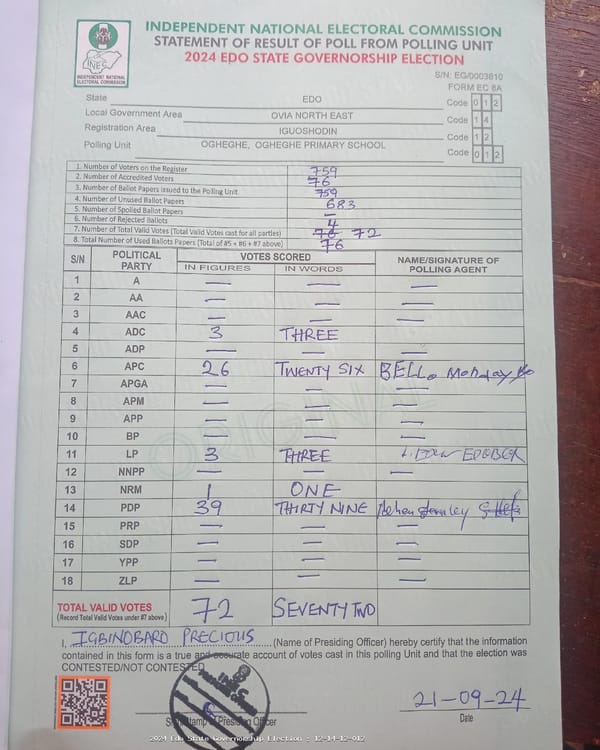 INDEPENDENT NATIONAL ELECTORAL COMMISSION
STATEMENT OF RESULT OF POLL FROM POLLING UNIT
2024 EDO STATE GOVERNORSHIP ELECTION
INEC
INDEPENDENT NATIONAL
ELECTORAL COMMISSION
S/N: EG/0003810
FORM EC 8A
State EDO Code 0 1 2
Local Government Area OVIA NORTH EAST Code 1 4
Registration Area IGUOSHODIN Code 1 2
Polling Unit OGHEGHE, OGHEGHE PRIMARY SCHOOL Code 0 1 2
1. Number of Voters on the Register 759
2. Number of Accredited Voters 76
3. Number of Ballot Papers issued to the Polling Unit 759
4. Number of Unused Ballot Papers 683
5. Number of Spoiled Ballot Papers —
6. Number of Rejected Ballots 4
7. Number of Total Valid Votes (Total Valid Votes cast for all parties) 76 72
8. Total Number of Used Ballots Papers (Total of #5 + #6 + #7 above) 76
S/N POLITICAL PARTY VOTES SCORED NAME/SIGNATURE OF POLLING AGENT
IN FIGURES IN WORDS
1 A — — —
2 AA — — —
3 AAC — — —
4 ADC 3 THREE
5 ADP — — —
6 APC 26 TWENTY SIX BELLO Monday
7 APGA — — —
8 APM — — —
9 APP — — —
10 BP — — —
11 LP 3 THREE
12 NNPP — — —
13 NRM 1 ONE
14 PDP 39 THIRTY NINE
15 PRP — — —
16 SDP — — —
17 YPP — — —
18 ZLP — — —
TOTAL VALID VOTES 72 SEVENTY TWO
(Record Total Valid Votes under #7 above)
I, IGBINOBARO PRECIOUS (Name of Presiding Officer) hereby certify that the information
contained in this form is a true and accurate account of votes cast in this polling Unit and that the election was
CONTESTED/NOT CONTESTED
21-09-24
Stamp of Presiding Officer Date
2024 Edo State Governorship Election : 12-14-12-012
ORIGINAL